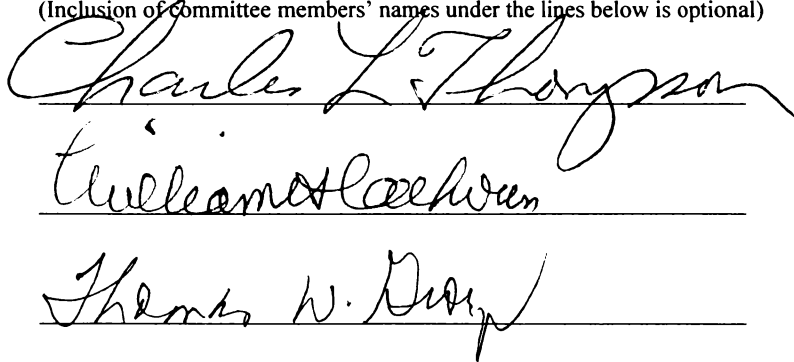 (Inclusion of committee members' names under the lines below is optional)
Charles L. Thompson
William H Calhoun
Thomas W.